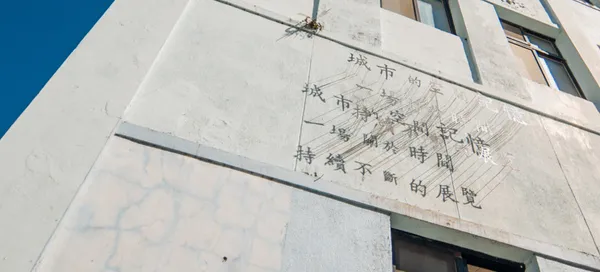 城市的
一場
城市 空 記憶
一場關於時間
持續不斷的展覽